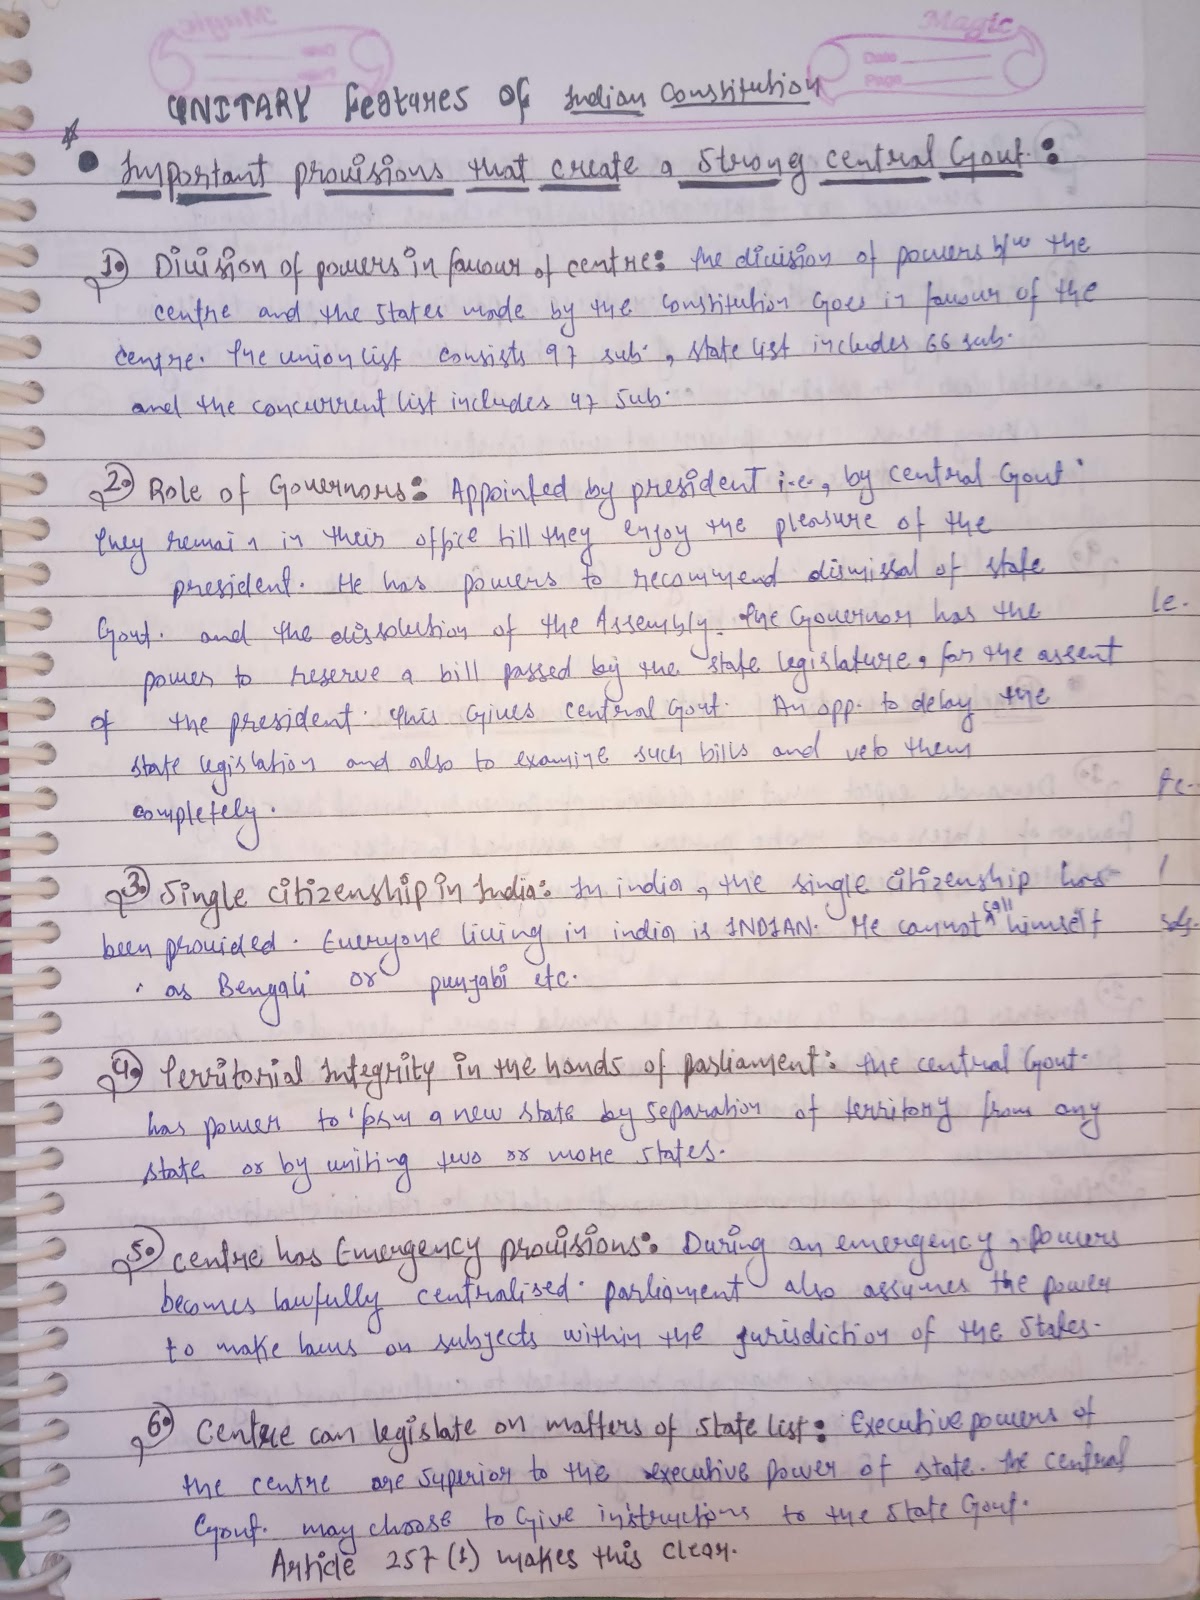 Magic
Date
Page
UNITARY Features of Indian Constitution
Important provisions that create a strong central Govt.:
1. Division of powers in favour of centre: The division of powers b/w the
centre and the states made by the constitution Goes in favour of the
centre. The union list consists 97 sub., state list includes 66 sub.
and the concurrent list includes 47 sub.
2. Role of Governors: Appointed by president i.e., by central Govt.
They remain in their office till they enjoy the pleasure of the
president. He has powers to recommend dismissal of state
Govt. and the dissolution of the Assembly. The Governor has the
power to reserve a bill passed by the state legislature, for the assent
of the president. This Gives central Govt. An opp. to delay the
state legislation and also to examine such bills and veto them
completely.
3. Single citizenship in India: In india, the single citizenship has
been provided. Everyone living in india is INDIAN. He cannot call himself
as Bengali or punjabi etc.
4. Territorial Integrity in the hands of parliament: The central Govt.
has power to form a new state by separation of territory from any
state or by uniting two or more states.
5. Centre has Emergency provisions: During an emergency, powers
becomes lawfully centralised. parliament also assumes the power
to make laws on subjects within the jurisdiction of the states.
6. Centre can legislate on matters of state list: Executive powers of
the centre are superior to the executive power of state. The central
Govt. may choose to Give instructions to the state Govt.
Article 257 (1) makes this clear.